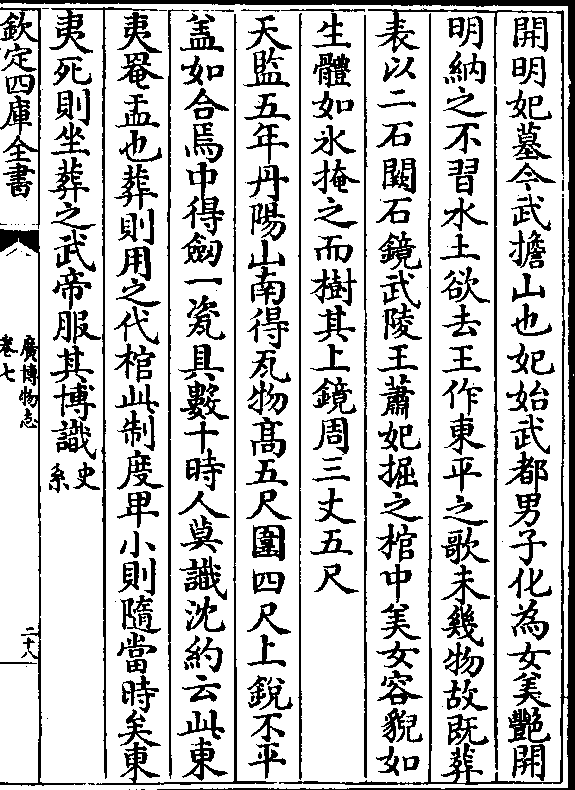 開明妃墓今武擔山也妃始武都男子化為女美艷開
明納之不習水土欲去王作東平之歌未幾物故既葬
表以二石闕石鏡武陵王蕭妃掘之棺中美女容貌如
生體如氷掩之而樹其上鏡周三丈五尺
天監五年丹陽山南得瓦物髙五尺圍四尺上銳不平
盖如合焉中得劒一瓷具數十時人莫識沈約云此東
夷罨盂也葬則用之代棺此制度卑小則隨當時矣東
夷死則坐葬之武帝服其博識史系
欽定四庫全書
廣博物志
卷七
二八